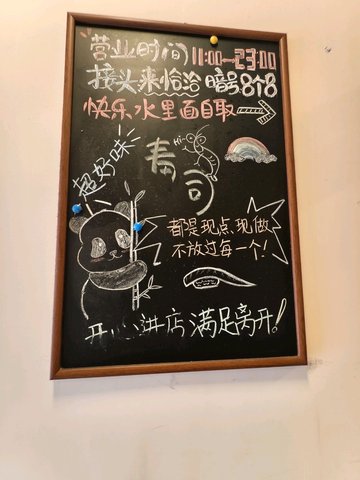 营业时间 11:00—23:00
接头来恰洽 暗号8个8
快乐水里面自取
Hi~
超好味
寿司
都是现点、现做
不放过每一个!
开心进店 满足离开!